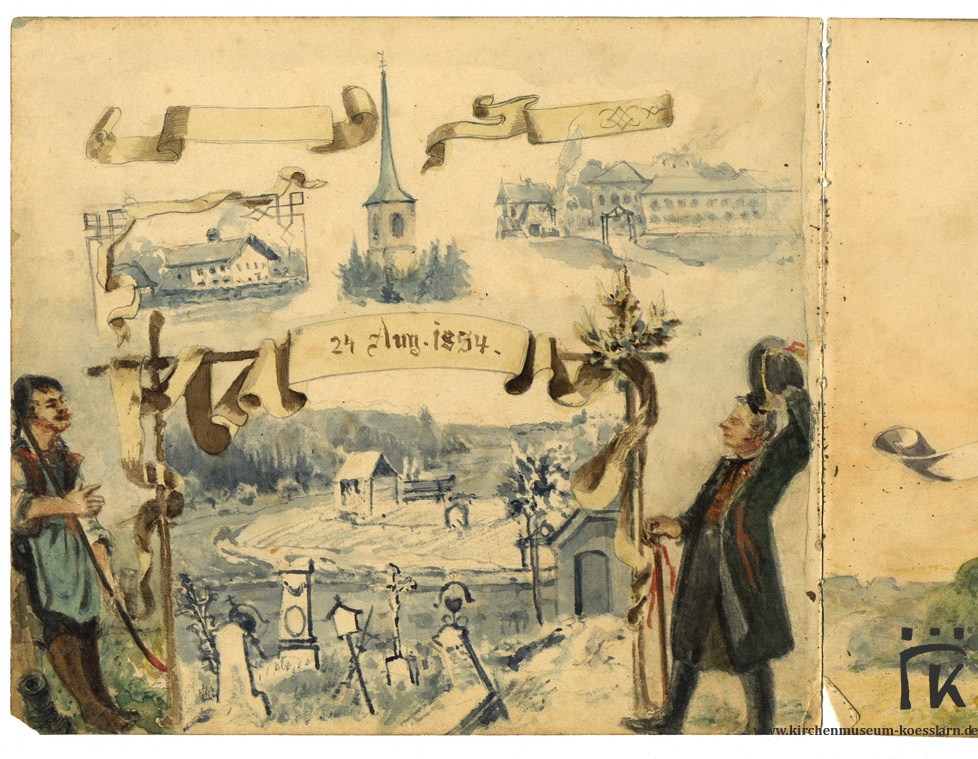 24 Aug. 1854.
K
www.kirchenmuseum-koesslarn.de